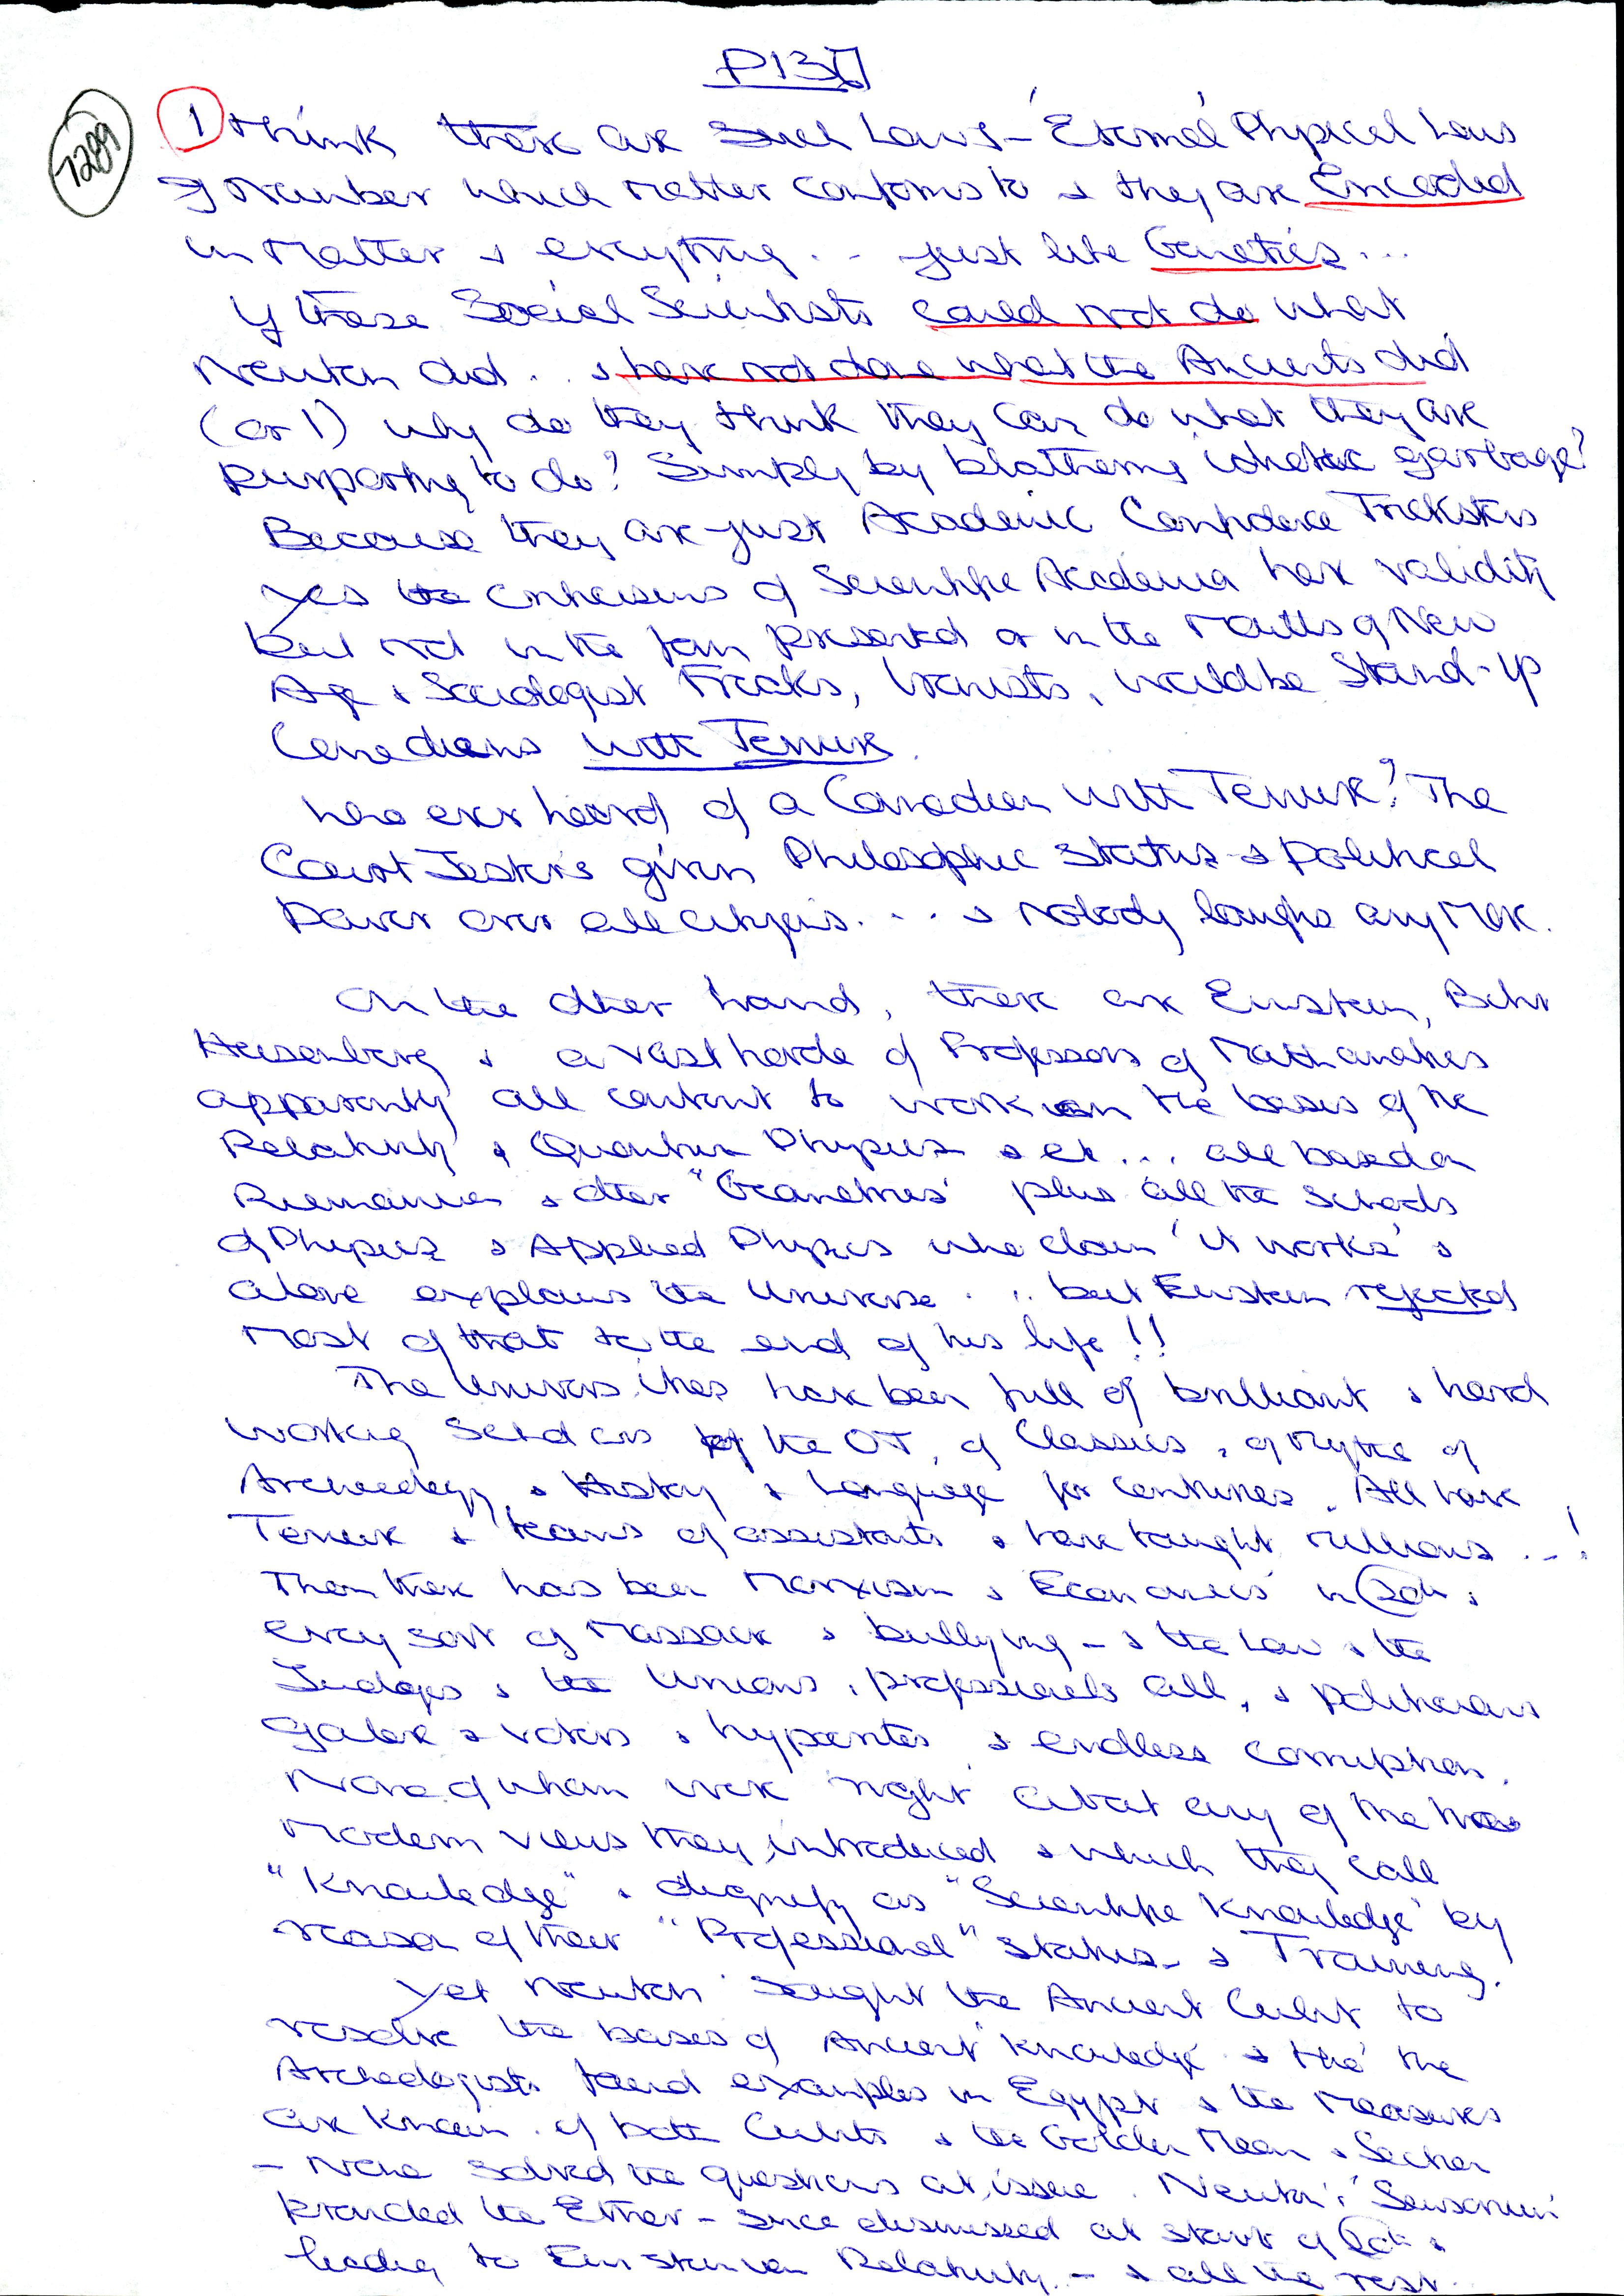 P137
7289
I think there are such Laws – 'Eternal' Physical Laws
of Number which matter conforms to & they are Encoded
in Matter & everything... just like Genetics...
If these Social Scientists could not do what
Newton did... & have not done what the Ancients did
(or I) why do they think they can do what they are
purporting to do? Simply by blathering garbage?
Because they are just Academic Confidence Tricksters
Yes the criticisms of Scientific Academia have validity
but not in the form presented or in the Mouths of New
Age & Sociologist Freaks, would be Stand-up
Canadians with Tenure.
Who ever heard of a Canadian with Tenure? The
Court Jesters given Philosophic status & political
Power over all citizens.... & Nobody laughs any More.
On the other hand, there are Einstein, Bohr
Heisenberg & a vast horde of Professors of Mathematics
apparently all content to work on the bases of the
Relativity & Quantum Physics & etc... all based on
Riemannian & other "Geometries' plus all the schools
of Physics & Applied Physics who claim 'it works' &
alone explains the Universe... but Einstein rejected
Most of that to the end of his life!!
The Universities have been full of brilliant & hard
working Scholars of the OT, of Classics, of Myths of
Archaeology, & History & Language for centuries. All have
Tenure & teams of assistants & have taught millions...!
Then there has been Marxism & Economics in 20th &
every sort of Massacre & bullying – & the Law & the
Judges & the Unions, professionals all, & politicians
galore & voters & hypocrites & endless corruption.
None of whom were 'right' about any of the
Modern views they introduced & which they call
"Knowledge" & dignify as "Scientific Knowledge' by
reason of their "Professional" status & Training.
Yet Newton sought the Ancient Cubit to
resolve the bases of Ancient Knowledge & tho' the
Archeologists found examples in Egypt & the Measures
are known of both Cubits & the Golden Mean & Section
– None solved the questions at issue. Newton's 'Sensorium'
provided the Ether – since dismissed at start of 20th &
leading to Einsteinian Relativity – & all the rest.